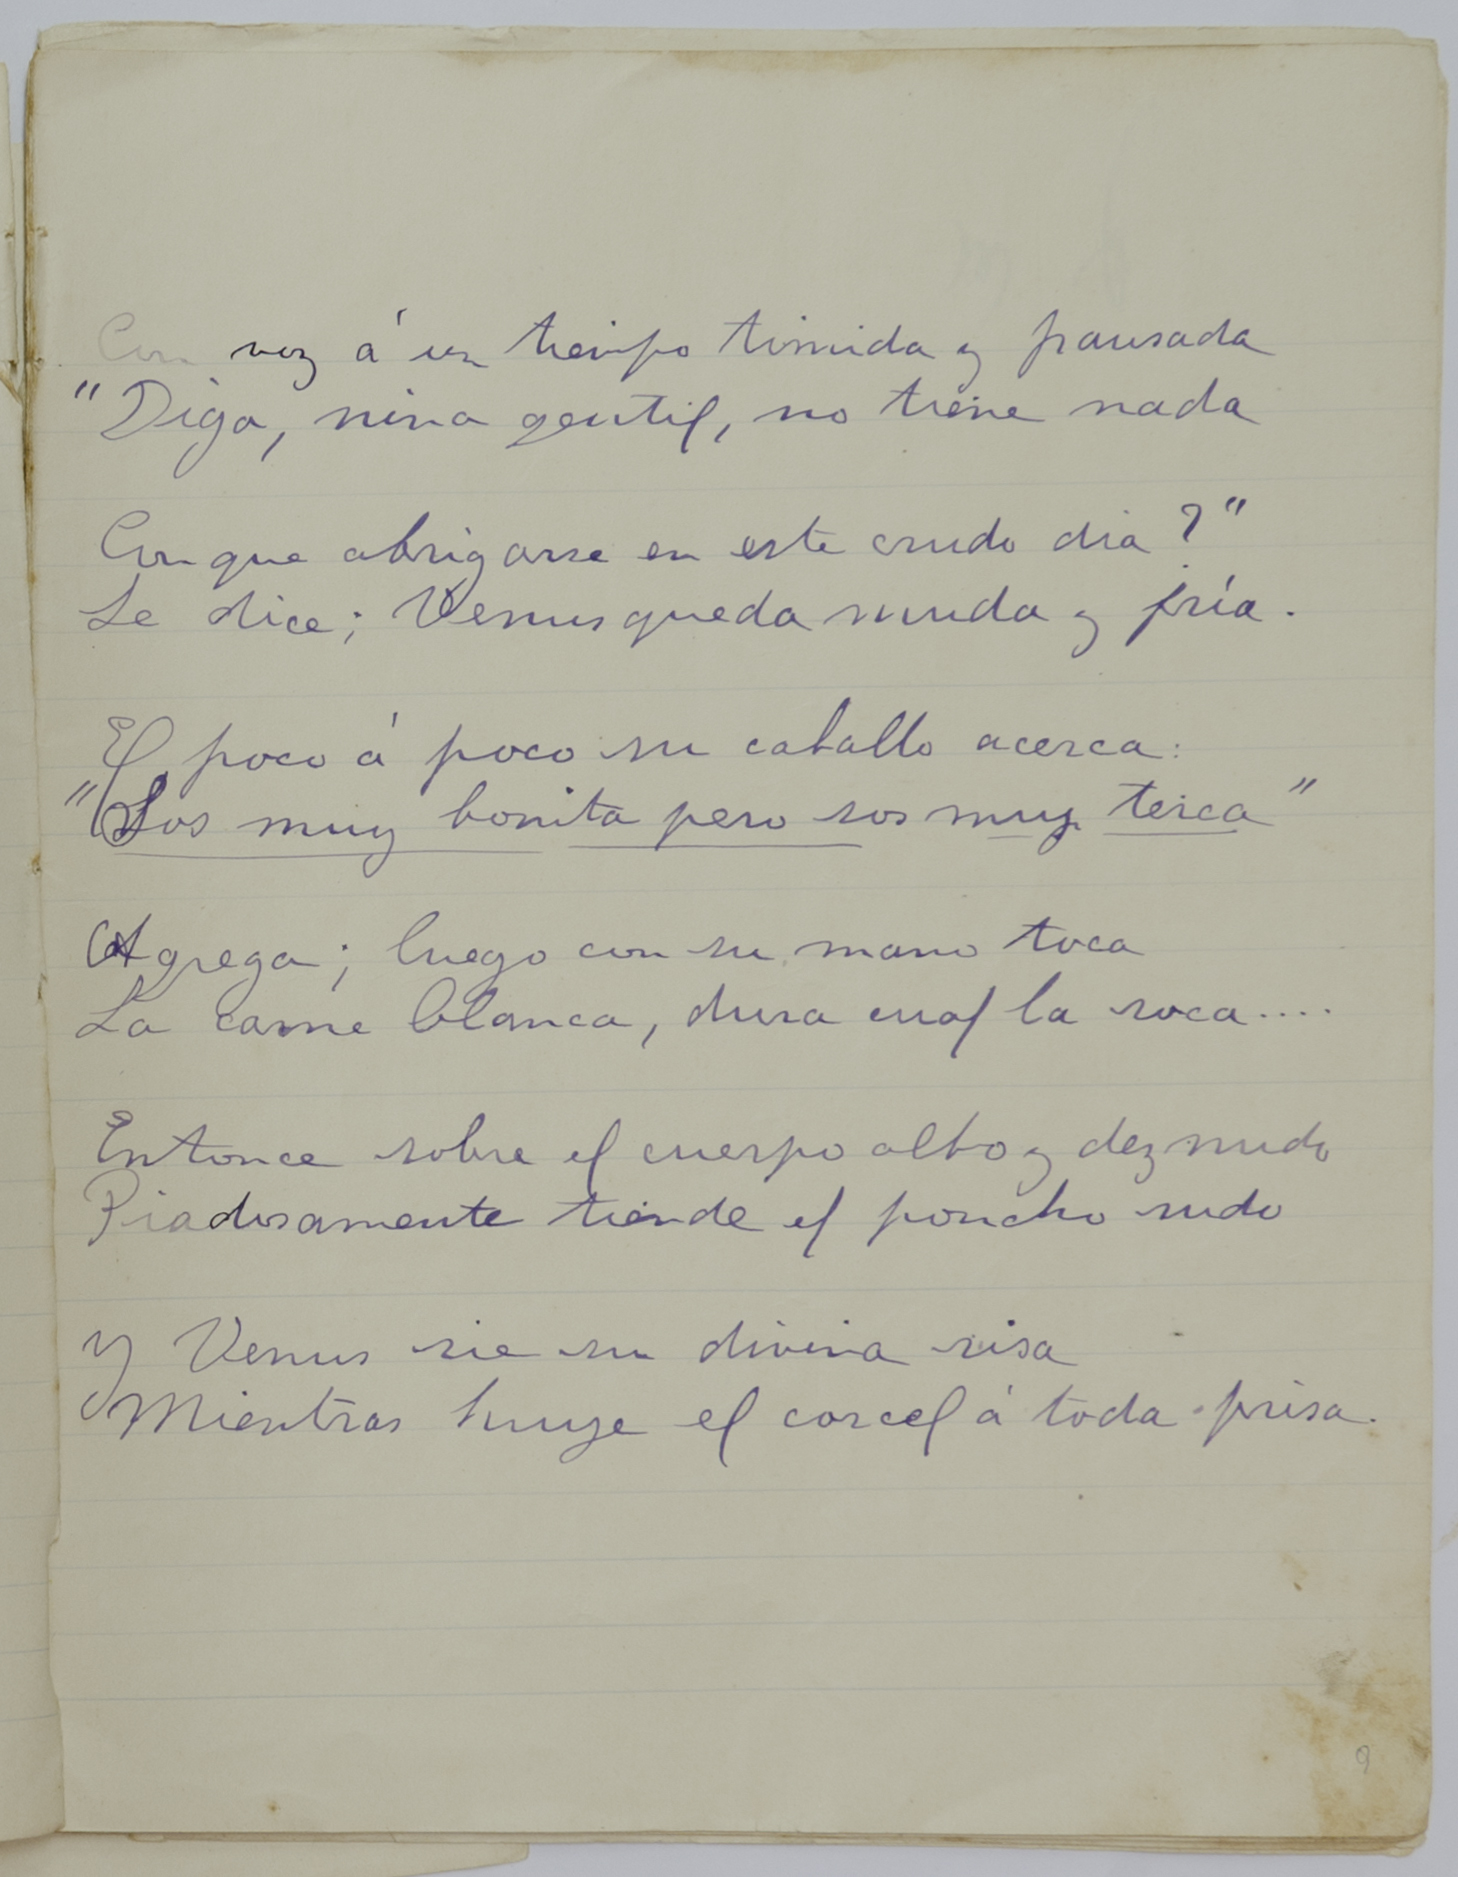 Con voz á un tiempo timida y pausada
"Diga, nina gentil, no tiene nada
Con que abrigarse en este crudo dia?"
Le dice; Venus queda muda y fría.
El poco á poco su caballo acerca:
"Sos muy bonita pero sos muy terca"
Agrega; luego con su mano toca
La carne blanca, dura cual la roca....
Entonce sobre el cuerpo albo y deznudo
Piadosamente tiende el poncho rudo
Y Venus rie su divina risa
Mientras huye el corcel á toda prisa.
9